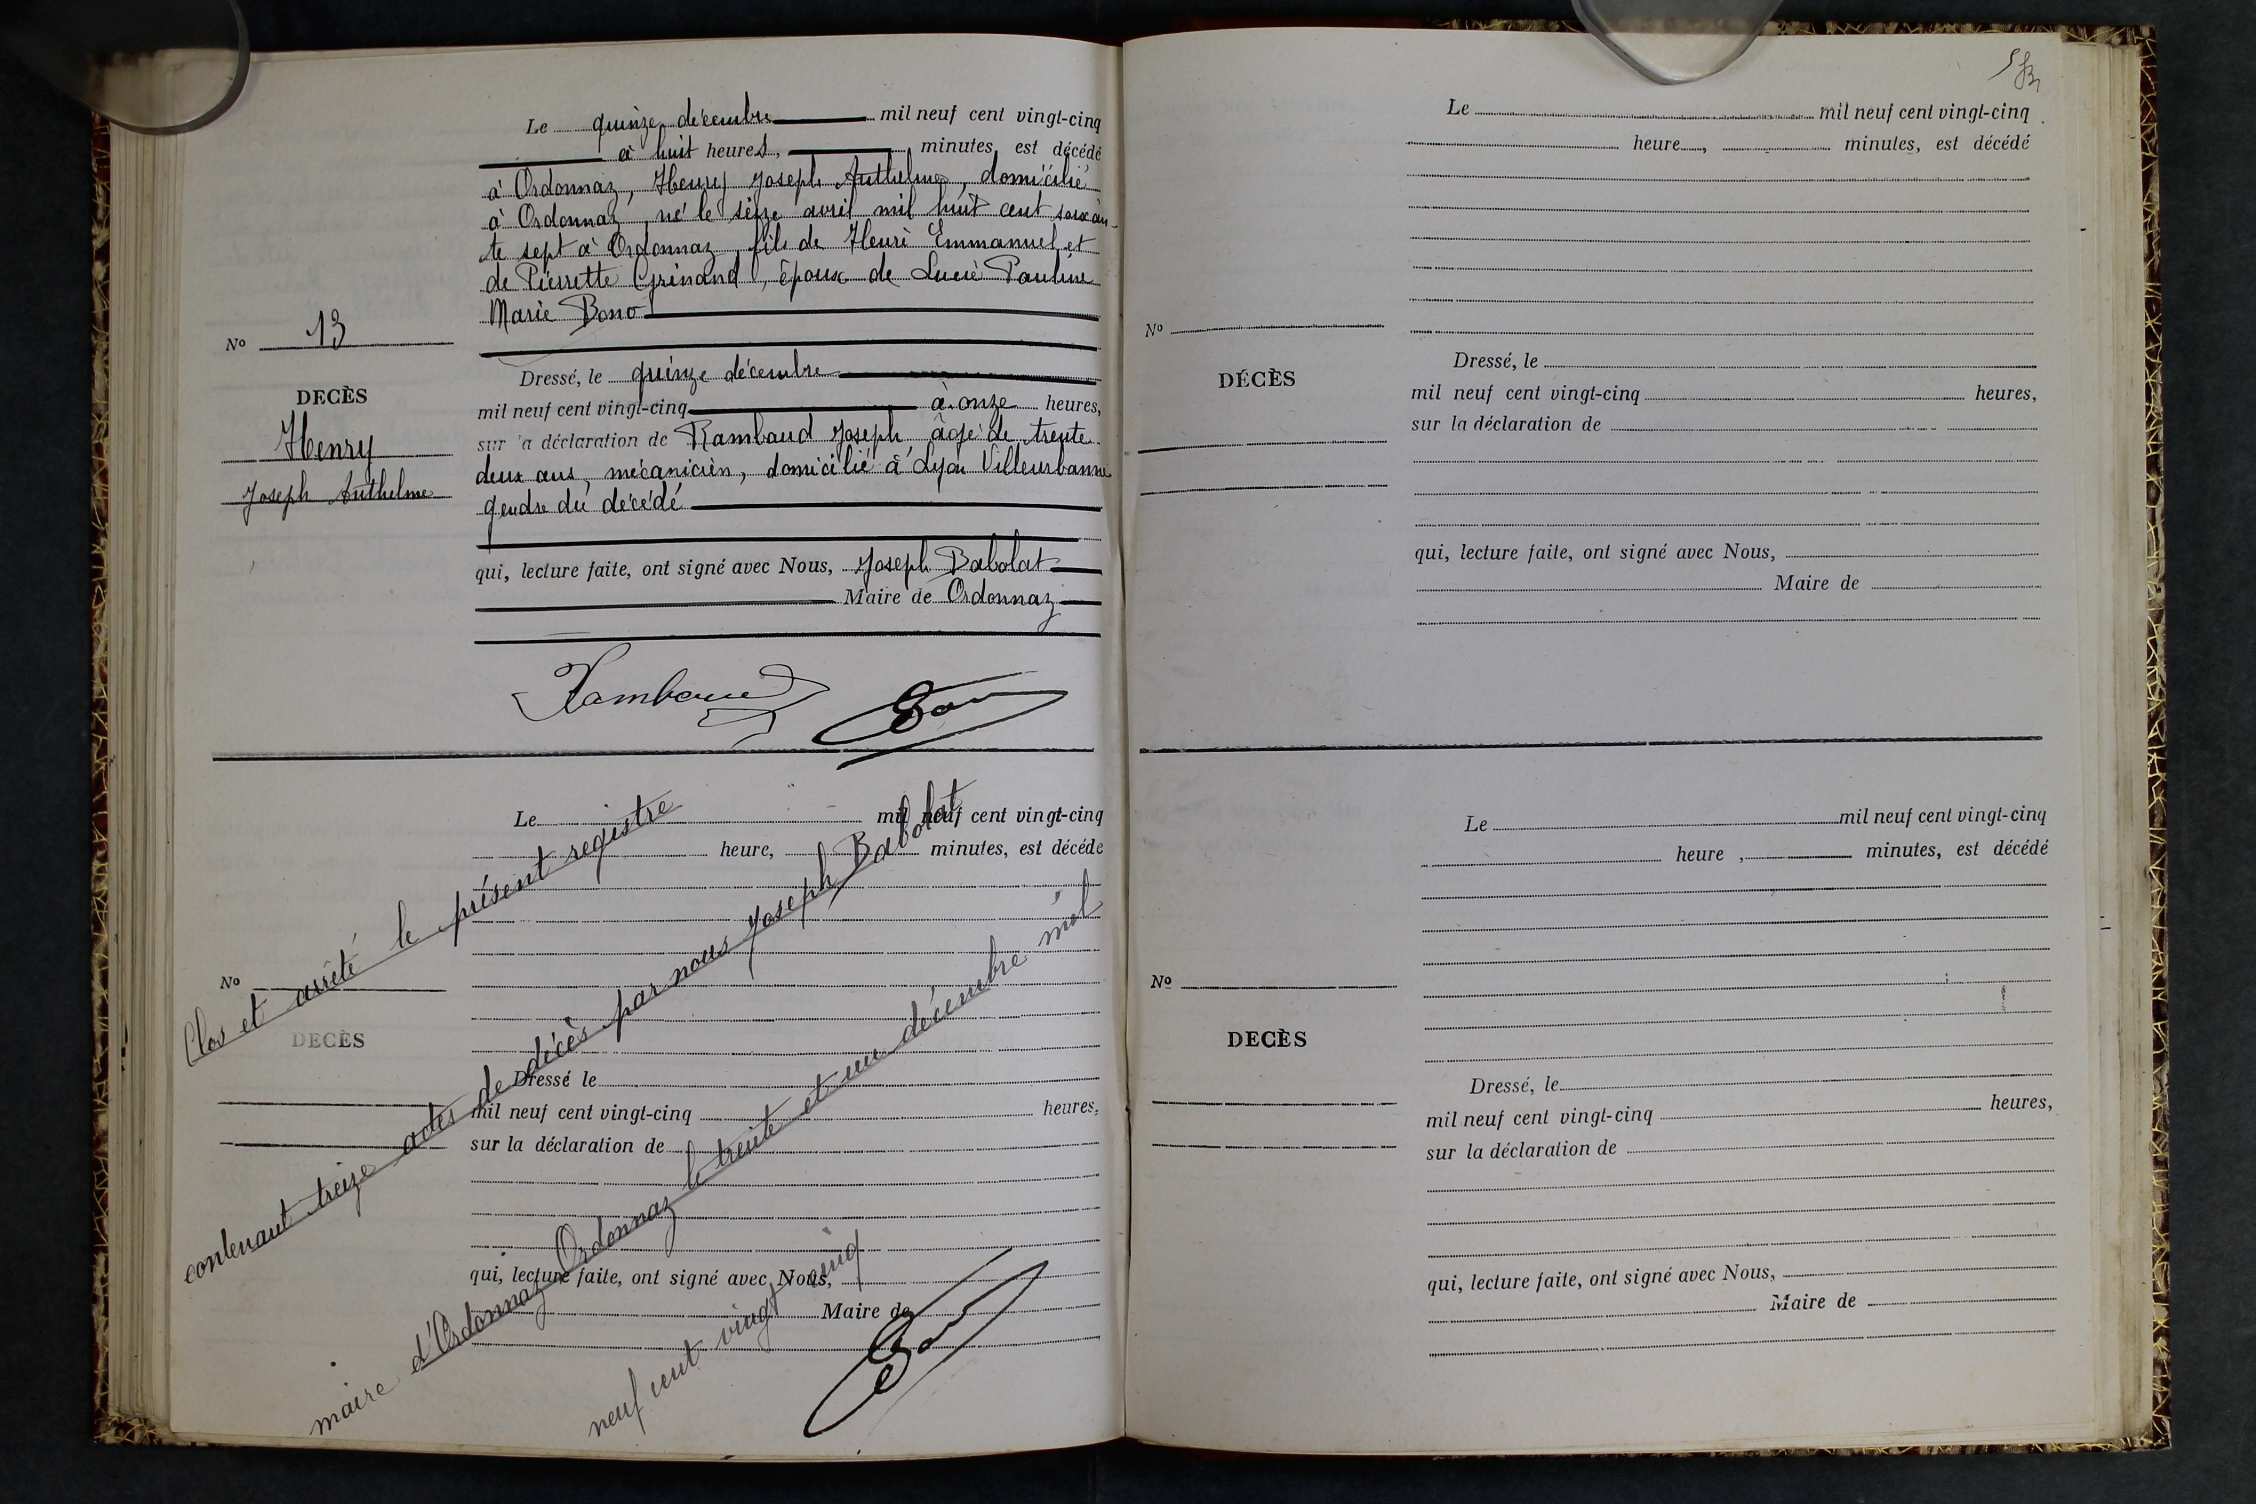 Le quinze décembre mil neuf cent vingt-cinq
à huit heures, minutes, est décédé
à Ordonnaz, Henry Joseph Anthelme, domicilié
à Ordonnaz, né le seize avril mil huit cent soixan-
te sept à Ordonnaz, fils de Henri Emmanuel et
de Pierrette Grinand, époux de Lucie Pauline
Marie Bono
No 13
DECÈS
Henry
Joseph Anthelme
Dressé, le quinze décembre
mil neuf cent vingt-cinq à onze heures,
sur la déclaration de Rambaud Joseph âgé de trente
deux ans, mécanicien, domicilié à Lyon Villeurbanne
gendre du décédé
qui, lecture faite, ont signé avec Nous, Joseph Babolat
Maire de Ordonnaz
Rambaud
Le mil neuf cent vingt-cinq
heure, minutes, est décédé
No
DECÈS
Dressé le
mil neuf cent vingt-cinq heures,
sur la déclaration de
qui, lecture faite, ont signé avec Nous,
Maire de
Clos et arrêté le présent registre
contenant treize actes de décès par nous Joseph Babolat
maire d'Ordonnaz Ordonnaz le trente et un décembre mil
neuf cent vingt cinq
Le mil neuf cent vingt-cinq
heure, minutes, est décédé
No
DÉCÈS
Dressé, le
mil neuf cent vingt-cinq heures,
sur la déclaration de
qui, lecture faite, ont signé avec Nous,
Maire de
Le mil neuf cent vingt-cinq
heure, minutes, est décédé
No
DECÈS
Dressé, le
mil neuf cent vingt-cinq heures,
sur la déclaration de
qui, lecture faite, ont signé avec Nous,
Maire de